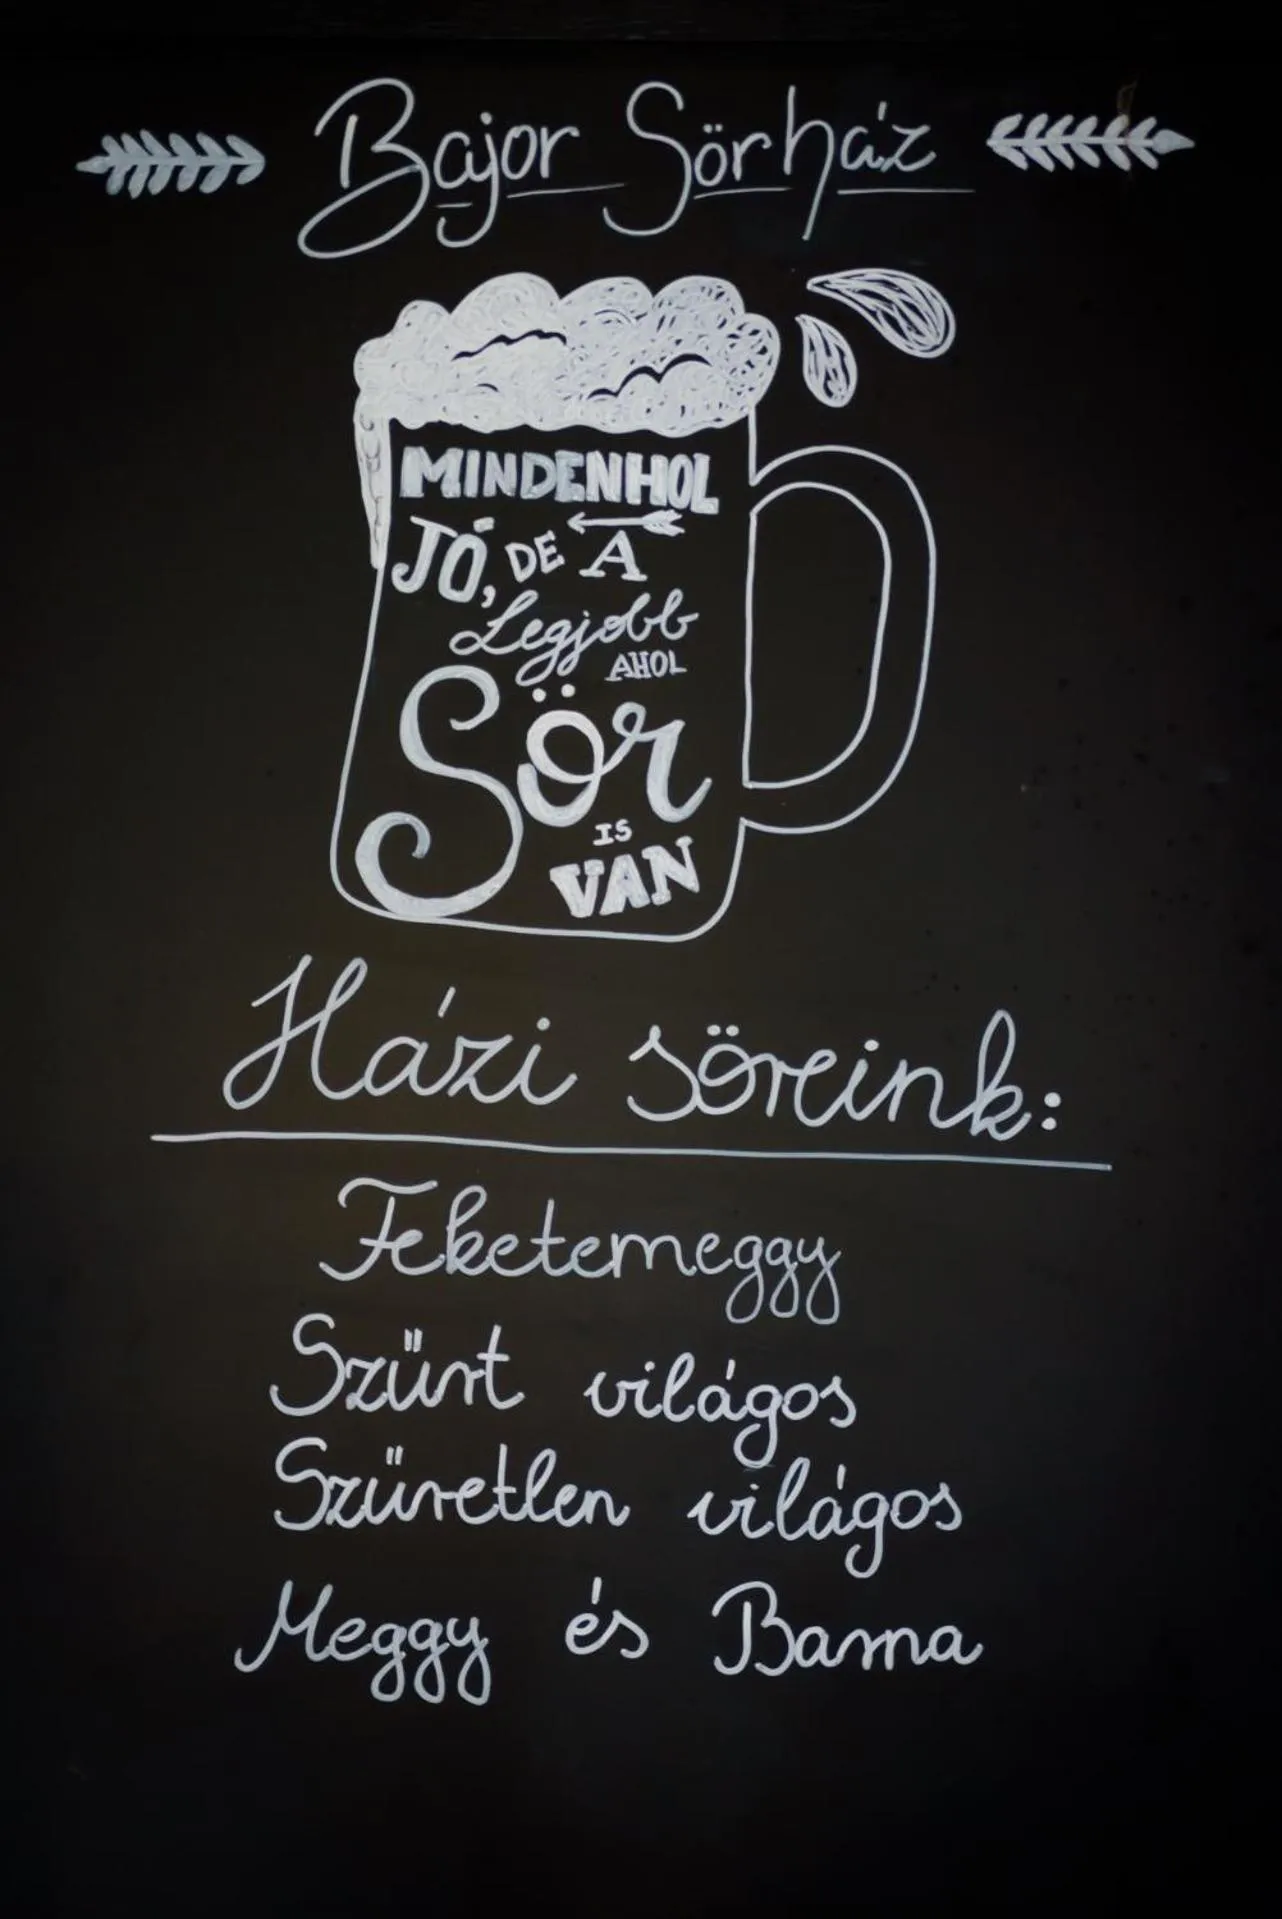 Bajor Sörház
MINDENHOL
JÓ, DE A
Legjobb
AHOL
Sör
IS
VAN
Házi söreink:
Feketemeggy
Szűrt világos
Szűretlen világos
Meggy és Barna